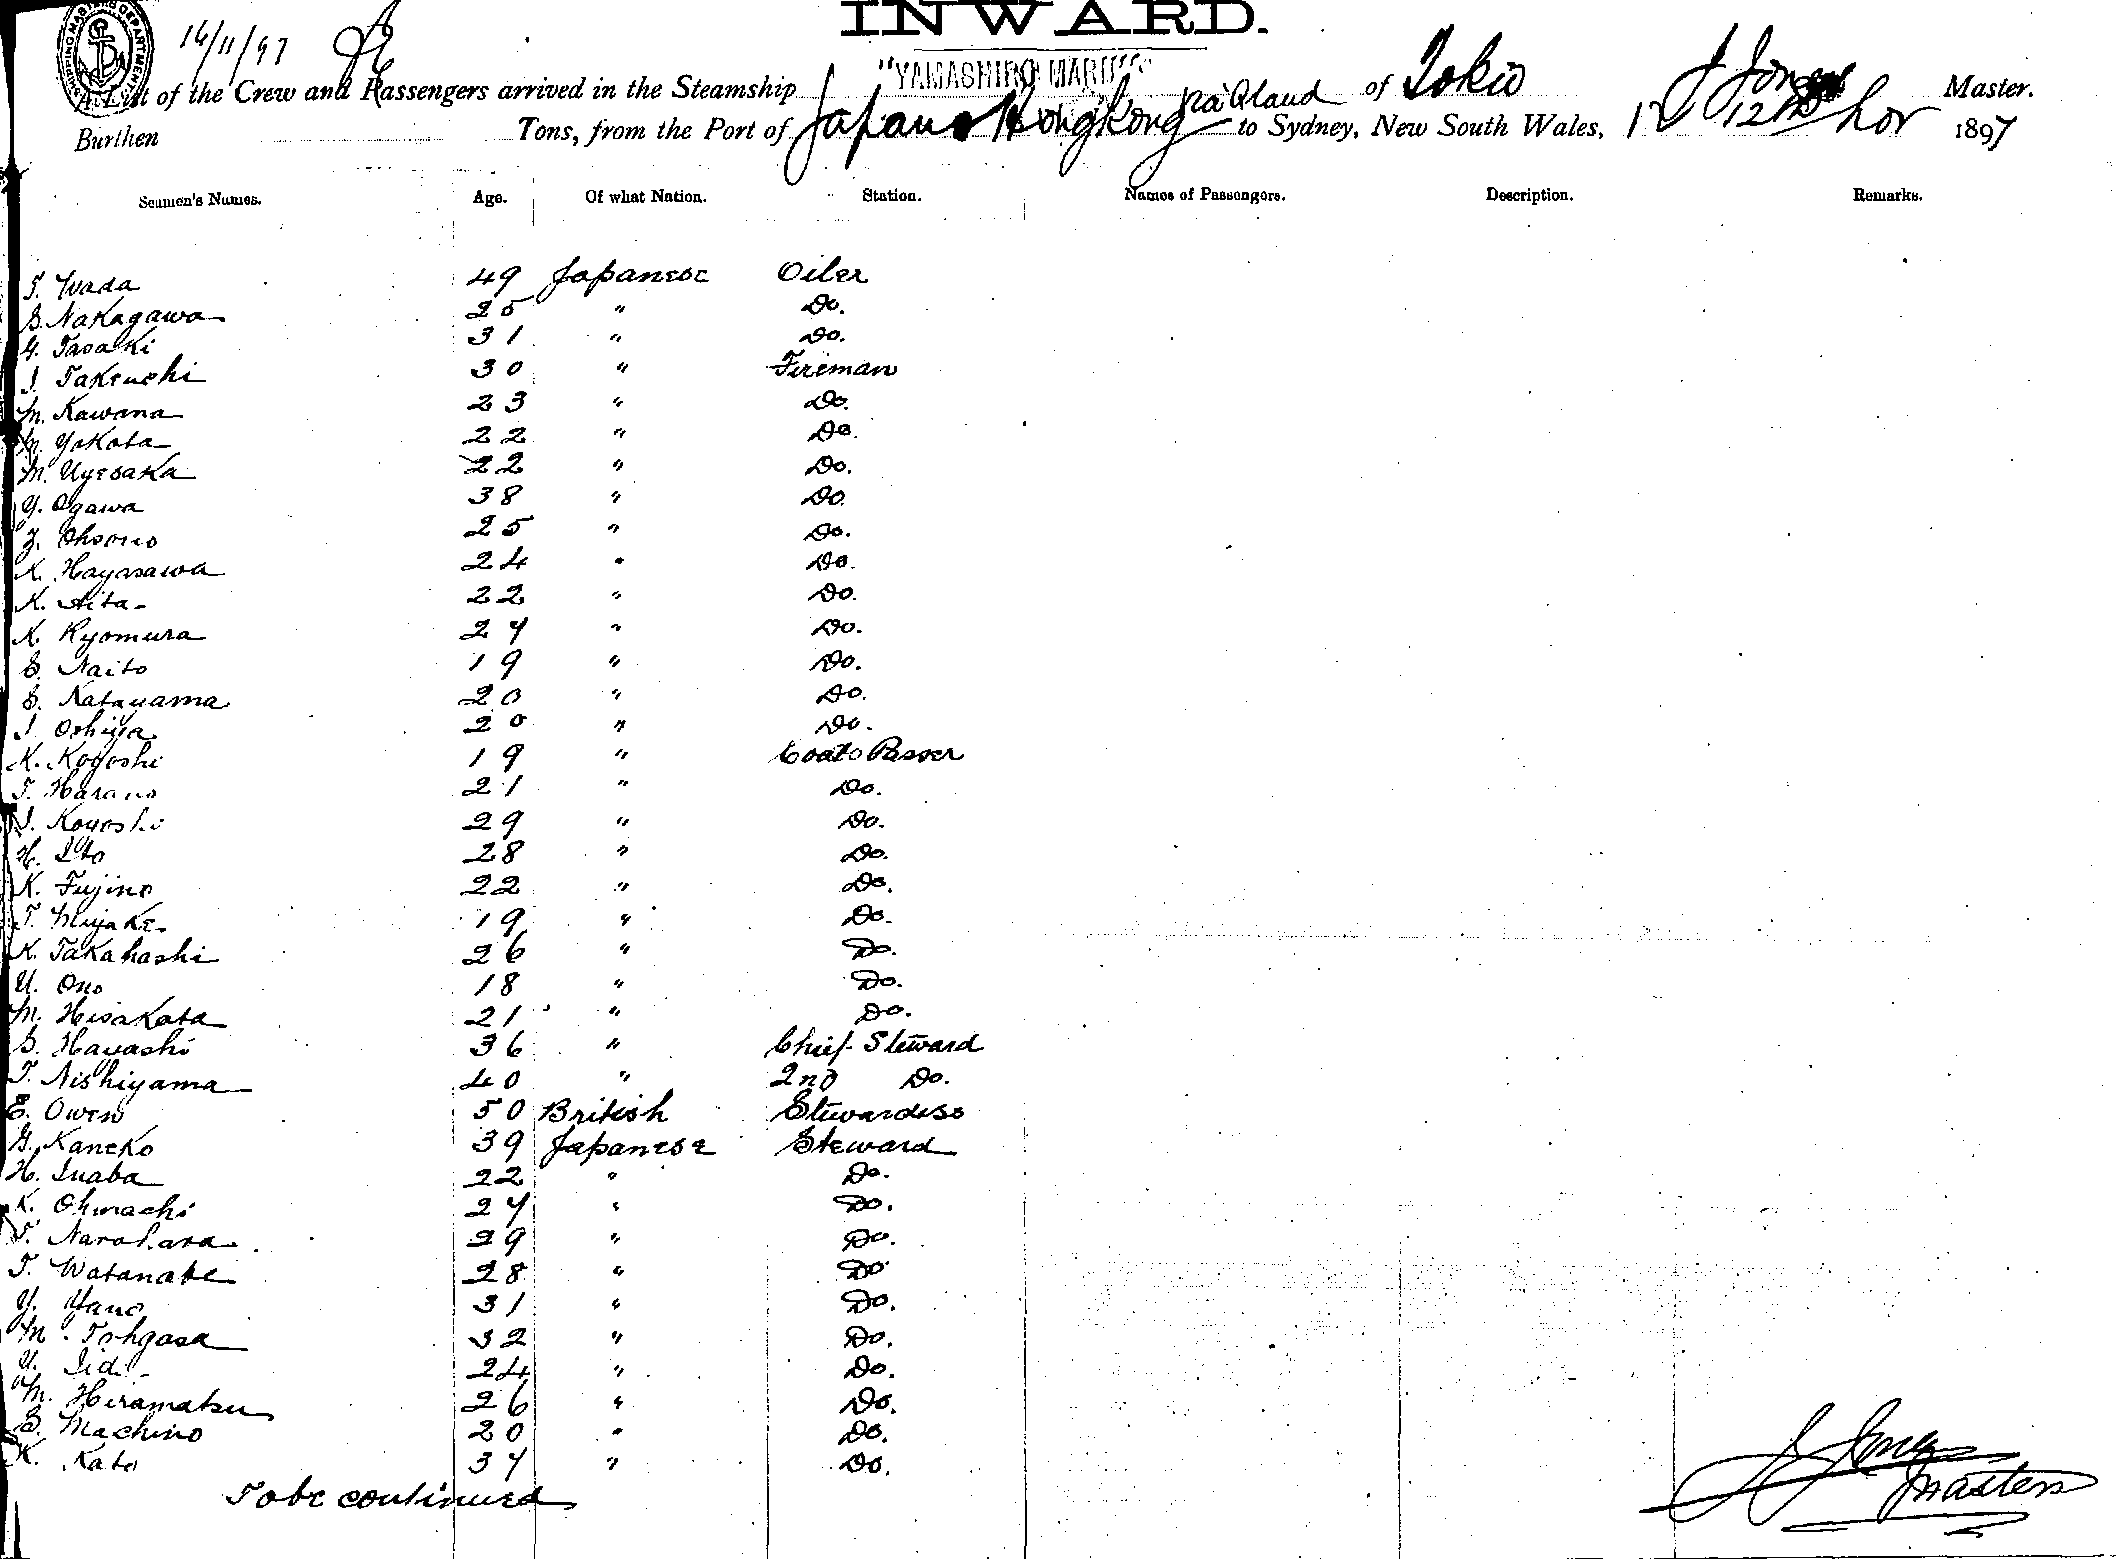 INWARD.
14/11/97
"YAMASHIRO MARU"
A List of the Crew and Passengers arrived in the Steamship via Qland of Tokio J Jones Master.
Burthen Tons, from the Port of Japan & Hongkong to Sydney, New South Wales, 12th Nov 1897
Seamen's Names. Age. Of what Nation. Station. Names of Passengers. Description. Remarks.
T. Wada 49 Japanese Oiler
S. Nakagawa 25 " Do.
G. Tasaki 31 " Do.
I. Takeuchi 30 " Fireman
M. Kawana 23 " Do.
M. Yokota 22 " Do.
M. Uyesaka 22 " Do.
Y. Ogawa 38 " Do.
Z. Ohsono 25 " Do.
K. Hayasawa 24 " Do.
K. Aita 22 " Do.
K. Kyomura 27 " Do.
S. Naito 19 " Do.
S. Katayama 20 " Do.
I. Oshiya 20 " Do.
K. Kogoshi 19 " Coals Passer
T. Harano 21 " Do.
I. Koyoshi 29 " Do.
H. Ito 28 " Do.
K. Fujino 22 " Do.
T. Miyake 19 " Do.
K. Takahashi 26 " Do.
U. Ono 18 " Do.
M. Hisakata 21 " Do.
S. Hayashi 36 " Chief Steward
T. Nishiyama 40 " 2nd Do.
E. Owen 50 British Stewardess
G. Kaneko 39 Japanese Steward
H. Inaba 22 " Do.
K. Ohmachi 27 " Do.
T. Narahara 29 " Do.
T. Watanabe 28 " Do.
Y. Yano 31 " Do.
M. Tohgasa 32 " Do.
U. 24 " Do.
M. Hiramatsu 26 " Do.
S. Machino 20 " Do.
K. Kato 37 " Do.
To be continued
J Jones
Master